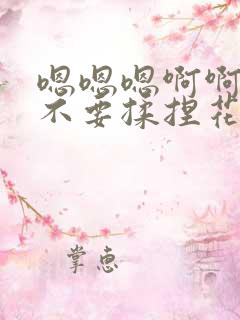 嗯嗯嗯啊啊
不要揉捏花
掌惠